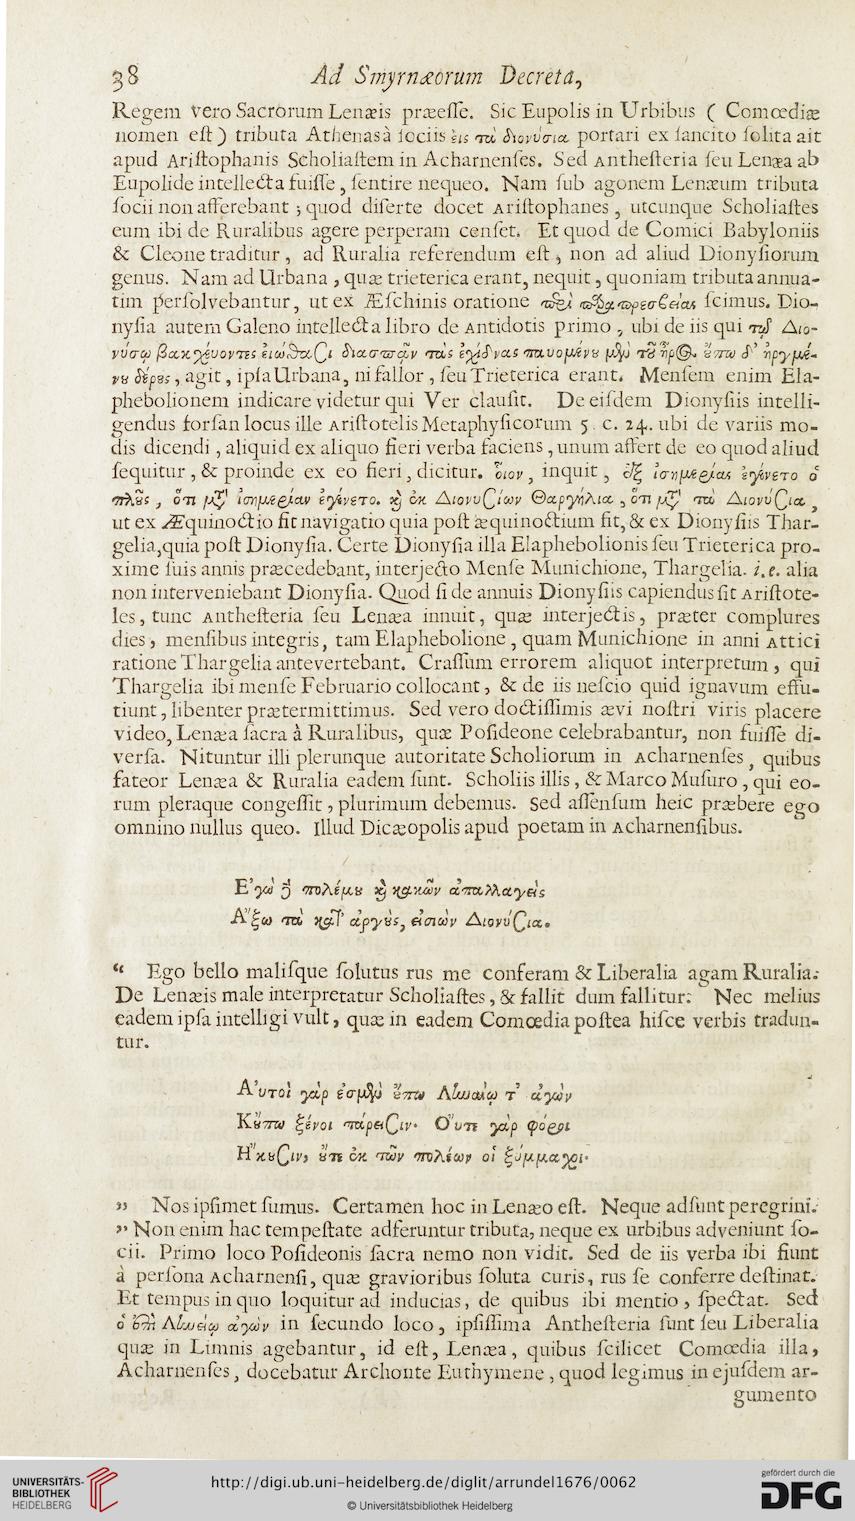 38 Ad Smyrnæorum Decreta,
Regem vero Sacrorum Lenæis præesse. Sic Eupolis in Urbibus ( Comœdiæ
nomen est ) tributa Athenas à sociis εἰς τὰ διονύσια portari ex sancito solita ait
apud Aristophanis Scholiastem in Acharnenses. Sed Anthesteria seu Lenæa ab
Eupolide intellecta fuisse, sentire nequeo. Nam sub agonem Lenæum tributa
socii non afferebant ; quod diserte docet Aristophanes, utcunque Scholiastes
eum ibi de Ruralibus agere perperam censet. Et quod de Comici Babyloniis
& Cleone traditur, ad Ruralia referendum est, non ad aliud Dionysiorum
genus. Nam ad Urbana, quæ trieterica erant, nequit, quoniam tributa annua-
tim persolvebantur, ut ex Æschinis oratione περὶ παραπρεσβείας scimus. Dio-
nysia autem Galeno intellecta libro de Antidotis primo, ubi de iis qui τῷ Διο-
νύσῳ βακχεύοντες εἰώθασι διασπᾷν τὰς ἐχίδνας παυομένου μὲν τοῦ ἦρος οὔπω δ' ἠργμέ-
νου θέρους, agit, ipsa Urbana, ni fallor, seu Trieterica erant. Mensem enim Ela-
phebolionem indicare videtur qui Ver clausit. De eisdem Dionysiis intelli-
gendus forsan locus ille Aristotelis Metaphysicorum 5. c. 24. ubi de variis mo-
dis dicendi, aliquid ex aliquo fieri verba faciens, unum affert de eo quod aliud
sequitur, & proinde ex eo fieri, dicitur. οἷον, inquit, ἐξ ἰσημερίας ἐγένετο ὁ
πλοῦς, ὅτι μετ' ἰσημερίαν ἐγένετο. καὶ ἐκ Διονυσίων Θαργήλια, ὅτι μετὰ τὰ Διονύσια,
ut ex Æquinoctio fit navigatio quia post æquinoctium fit, & ex Dionysiis Thar-
gelia, quia post Dionysia. Certe Dionysia illa Elaphebolionis seu Trieterica pro-
xime suis annis præcedebant, interjecto Mense Munichione, Thargelia. i.e. alia
non interveniebant Dionysia. Quod si de annuis Dionysiis capiendus sit Aristote-
les, tunc Anthesteria seu Lenæa innuit, quæ interjectis, præter complures
dies, mensibus integris, tam Elaphebolione, quam Munichione in anni Attici
ratione Thargelia antevertebant. Crassum errorem aliquot interpretum, qui
Thargelia ibi mense Februario collocant, & de iis nescio quid ignavum effu-
tiunt, libenter prætermittimus. Sed vero doctissimis ævi nostri viris placere
video, Lenæa sacra à Ruralibus, quæ Posideone celebrabantur, non fuisse di-
versa. Nituntur illi plerunque autoritate Scholiorum in Acharnenses, quibus
fateor Lenæa & Ruralia eadem sunt. Scholiis illis, & Marco Musuro, qui eo-
rum pleraque congessit, plurimum debemus. Sed assensum heic præbere ego
omnino nullus queo. Illud Dicæopolis apud poetam in Acharnensibus.
Ἐγὼ δὲ πολέμου καὶ κακῶν ἀπαλλαγεὶς
Ἄξω τὰ κατ' ἀργοὺς, εἰσιὼν Διονύσια.
“ Ego bello malisque solutus rus me conferam & Liberalia agam Ruralia.
De Lenæis male interpretatur Scholiastes, & fallit dum fallitur. Nec melius
eadem ipsa intelligi vult, quæ in eadem Comœdia postea hisce verbis tradun-
tur.
Αὐτοὶ γάρ ἐσμὲν οὔπω Ληναίῳ τ' ἀγὼν
Κοὔπω ξένοι πάρεισιν· Οὔτε γὰρ φόροι
Ἥκουσιν, οὔτε ἐκ τῶν πολέων οἱ ξύμμαχοι·
„ Nos ipsimet sumus. Certamen hoc in Lenæo est. Neque adsunt peregrini.
„ Non enim hac tempestate adferuntur tributa, neque ex urbibus adveniunt so-
cii. Primo loco Posideonis sacra nemo non vidit. Sed de iis verba ibi fiunt
à persona Acharnensi, quæ gravioribus soluta curis, rus se conferre destinat.
Et tempus in quo loquitur ad inducias, de quibus ibi mentio, spectat. Sed
ὁ ἐπὶ Ληνείῳ ἀγὼν in secundo loco, ipsissima Anthesteria sunt seu Liberalia
quæ in Limnis agebantur, id est, Lenæa, quibus scilicet Comœdia illa,
Acharnenses, docebatur Archonte Euthymene, quod legimus in ejusdem ar-
gumento
UNIVERSITÄTS-
BIBLIOTHEK
HEIDELBERG
http://digi.ub.uni-heidelberg.de/diglit/arrundel1676/0062
© Universitätsbibliothek Heidelberg
gefördert durch die
DFG